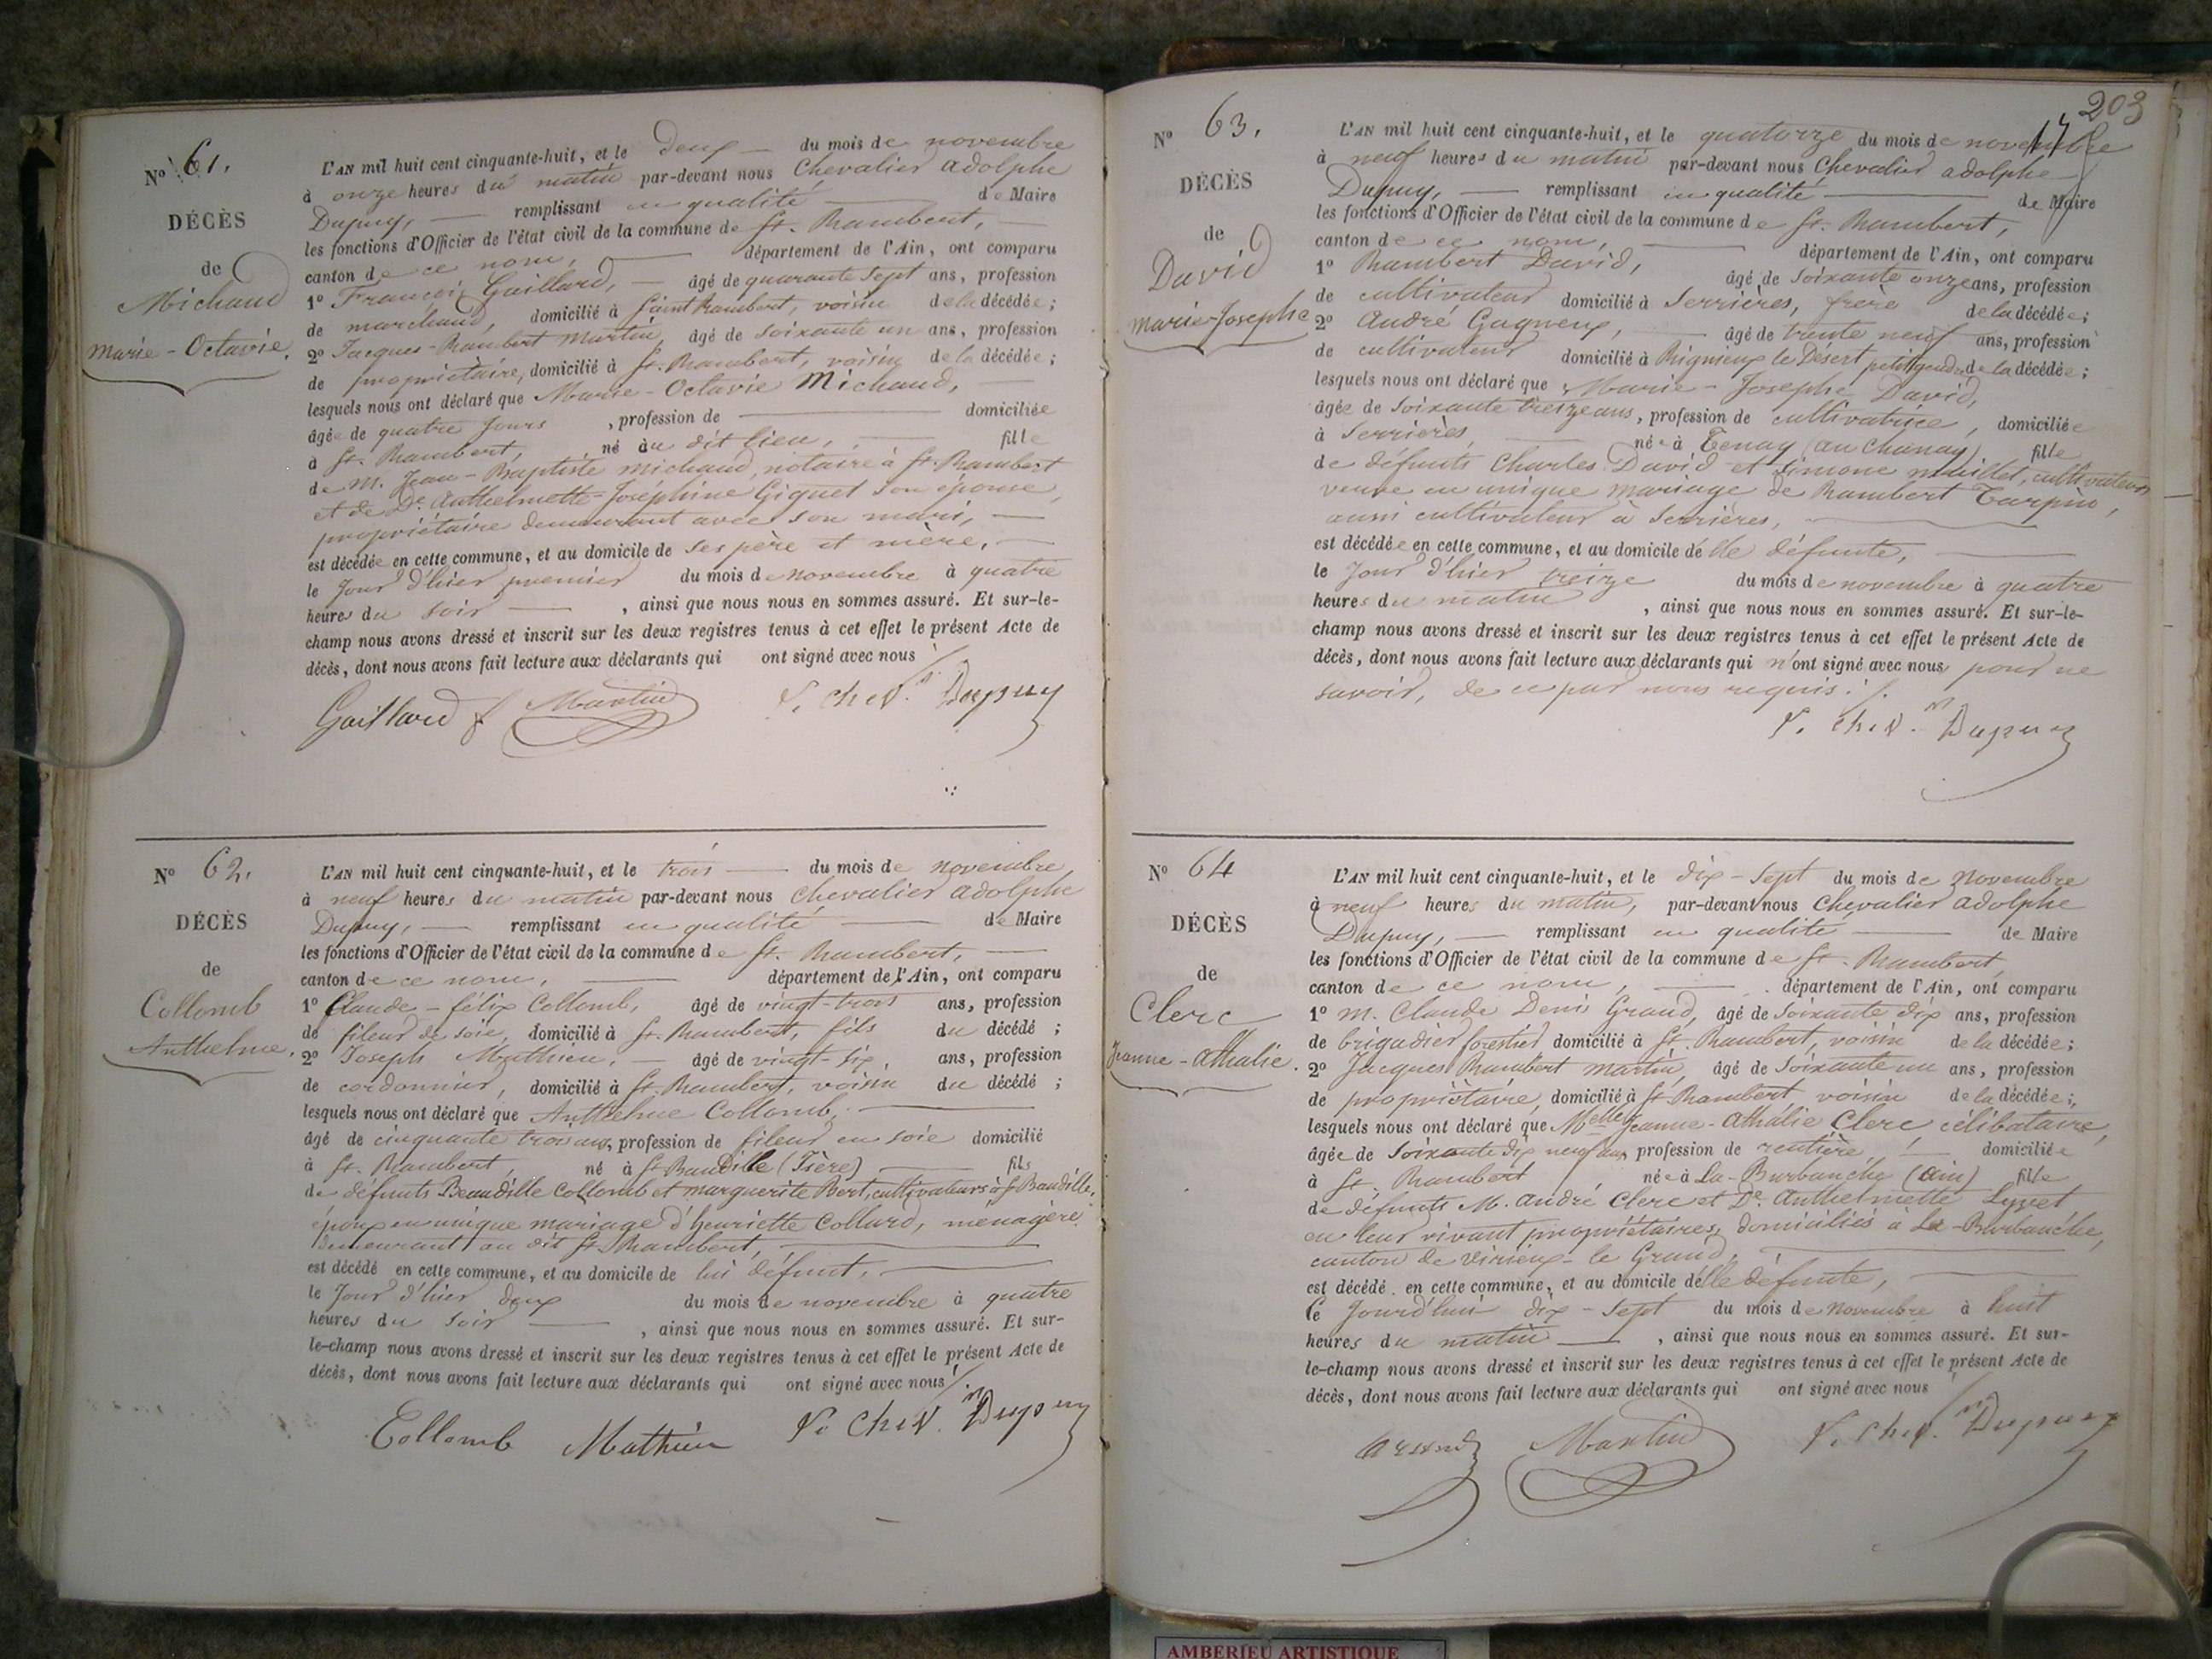 N° 61.
DÉCÈS
de
Michaud
Marie-Octavie.
L'AN mil huit cent cinquante-huit, et le deux du mois de novembre
à onze heures du matin par-devant nous Chevalier adolphe
Dupuy, remplissant en qualité de Maire
les fonctions d'Officier de l'état civil de la commune de St. Rambert,
canton de ce nom, département de l'Ain, ont comparu
1° François Gaillard, âgé de quarante sept ans, profession
de marchand, domicilié à Saint Rambert, voisin de la décédée;
2° Jacques-Rambert Martin, âgé de soixante un ans, profession
de propriétaire, domicilié à St. Rambert, voisin de la décédée;
lesquels nous ont déclaré que Marie-Octavie Michaud,
âgée de quatre jours, profession de domiciliée
à St. Rambert, né au dit lieu, fille
de M. Jean-Baptiste Michaud, notaire à St. Rambert
et de De. Anthelmette-Joséphine Giguet son épouse,
propriétaire demeurant avec son mari,
est décédée en cette commune, et au domicile de ses père et mère,
le jour d'hier premier du mois de novembre à quatre
heures du soir, ainsi que nous nous en sommes assuré. Et sur-le-
champ nous avons dressé et inscrit sur les deux registres tenus à cet effet le présent Acte de
décès, dont nous avons fait lecture aux déclarants qui ont signé avec nous
Gaillard f Martin Chev. Dupuy
N° 62.
DÉCÈS
de
Collomb
Anthelme.
L'AN mil huit cent cinquante-huit, et le trois du mois de novembre
à neuf heures du matin par-devant nous Chevalier adolphe
Dupuy, remplissant en qualité de Maire
les fonctions d'Officier de l'état civil de la commune de St. Rambert,
canton de ce nom, département de l'Ain, ont comparu
1° Claude-félix Collomb, âgé de vingt-trois ans, profession
de fileur de soie, domicilié à St. Rambert, fils du décédé;
2° Joseph Mathieu, âgé de vingt-six, ans, profession
de cordonnier, domicilié à St. Rambert, voisin du décédé;
lesquels nous ont déclaré que Anthelme Collomb,
âgé de cinquante trois ans, profession de fileur en soie domicilié
à St. Rambert, né à St Baudille (Isère) fils
de défunts Beaudille Collomb et marguerite Bert, cultivateurs à St Baudille,
époux en unique mariage d'henriette Collard, ménagère
demeurant au dit St. Rambert,
est décédé en cette commune, et au domicile de lui défunt,
le jour d'hier deux du mois de novembre à quatre
heures du soir, ainsi que nous nous en sommes assuré. Et sur-
le-champ nous avons dressé et inscrit sur les deux registres tenus à cet effet le présent Acte de
décès, dont nous avons fait lecture aux déclarants qui ont signé avec nous
Collomb Mathieu Chev. Dupuy
203
17
N° 63.
DÉCÈS
de
David
Marie-Josephe
L'AN mil huit cent cinquante-huit, et le quatorze du mois de novembre
à neuf heures du matin par-devant nous Chevalier adolphe
Dupuy, remplissant en qualité de Maire
les fonctions d'Officier de l'état civil de la commune de St. Rambert,
canton de ce nom, département de l'Ain, ont comparu
1° Rambert David, âgé de soixante onze ans, profession
de cultivateur domicilié à Serrières, frère de la décédée;
2° André Gagneux, âgé de trente neuf ans, profession
de cultivateur domicilié à Prignieux le Désert, petit gendre de la décédée;
lesquels nous ont déclaré que Marie-Josephe David,
âgée de soixante treize ans, profession de cultivatrice, domiciliée
à Serrières, née à Tenay (au Chanay) fille
de défunts Charles David et Simone millet, cultivateurs
veuve en unique mariage de Rambert Tarpin,
aussi cultivateur à Serrières,
est décédée en cette commune, et au domicile d'elle défunte,
le jour d'hier treize du mois de novembre à quatre
heures du matin, ainsi que nous nous en sommes assuré. Et sur-le-
champ nous avons dressé et inscrit sur les deux registres tenus à cet effet le présent Acte de
décès, dont nous avons fait lecture aux déclarants qui n'ont signé avec nous pour ne
savoir, de ce par nous requis.
Chev. Dupuy
N° 64
DÉCÈS
de
Clerc
Jeanne-Athalie.
L'AN mil huit cent cinquante-huit, et le dix-sept du mois de novembre
à neuf heures du matin, par-devant nous Chevalier adolphe
Dupuy, remplissant en qualité de Maire
les fonctions d'Officier de l'état civil de la commune de St. Rambert
canton de ce nom, département de l'Ain, ont comparu
1° M. Claude Denis Grand, âgé de soixante dix ans, profession
de brigadier forestier domicilié à St. Rambert, voisin de la décédée;
2° Jacques Rambert Martin, âgé de soixante un ans, profession
de propriétaire, domicilié à St. Rambert voisin de la décédée;
lesquels nous ont déclaré que Melle Jeanne-Athalie Clerc, célibataire,
âgée de soixante dix neuf ans, profession de rentière, domiciliée
à St. Rambert née à La-Burbanche (ain) fille
de défunts M. André Clerc et De. Anthelmette Leyvet
en leur vivant propriétaires, domiciliés à La-Burbanche,
canton de Virieux-le Grand,
est décédé en cette commune, et au domicile d'elle défunte,
Ce jourd'hui dix-sept du mois de novembre à huit
heures du matin, ainsi que nous nous en sommes assuré. Et sur-
le-champ nous avons dressé et inscrit sur les deux registres tenus à cet effet le présent Acte de
décès, dont nous avons fait lecture aux déclarants qui ont signé avec nous
Martin Chev. Dupuy
AMBERIEU ARTISTIQUE